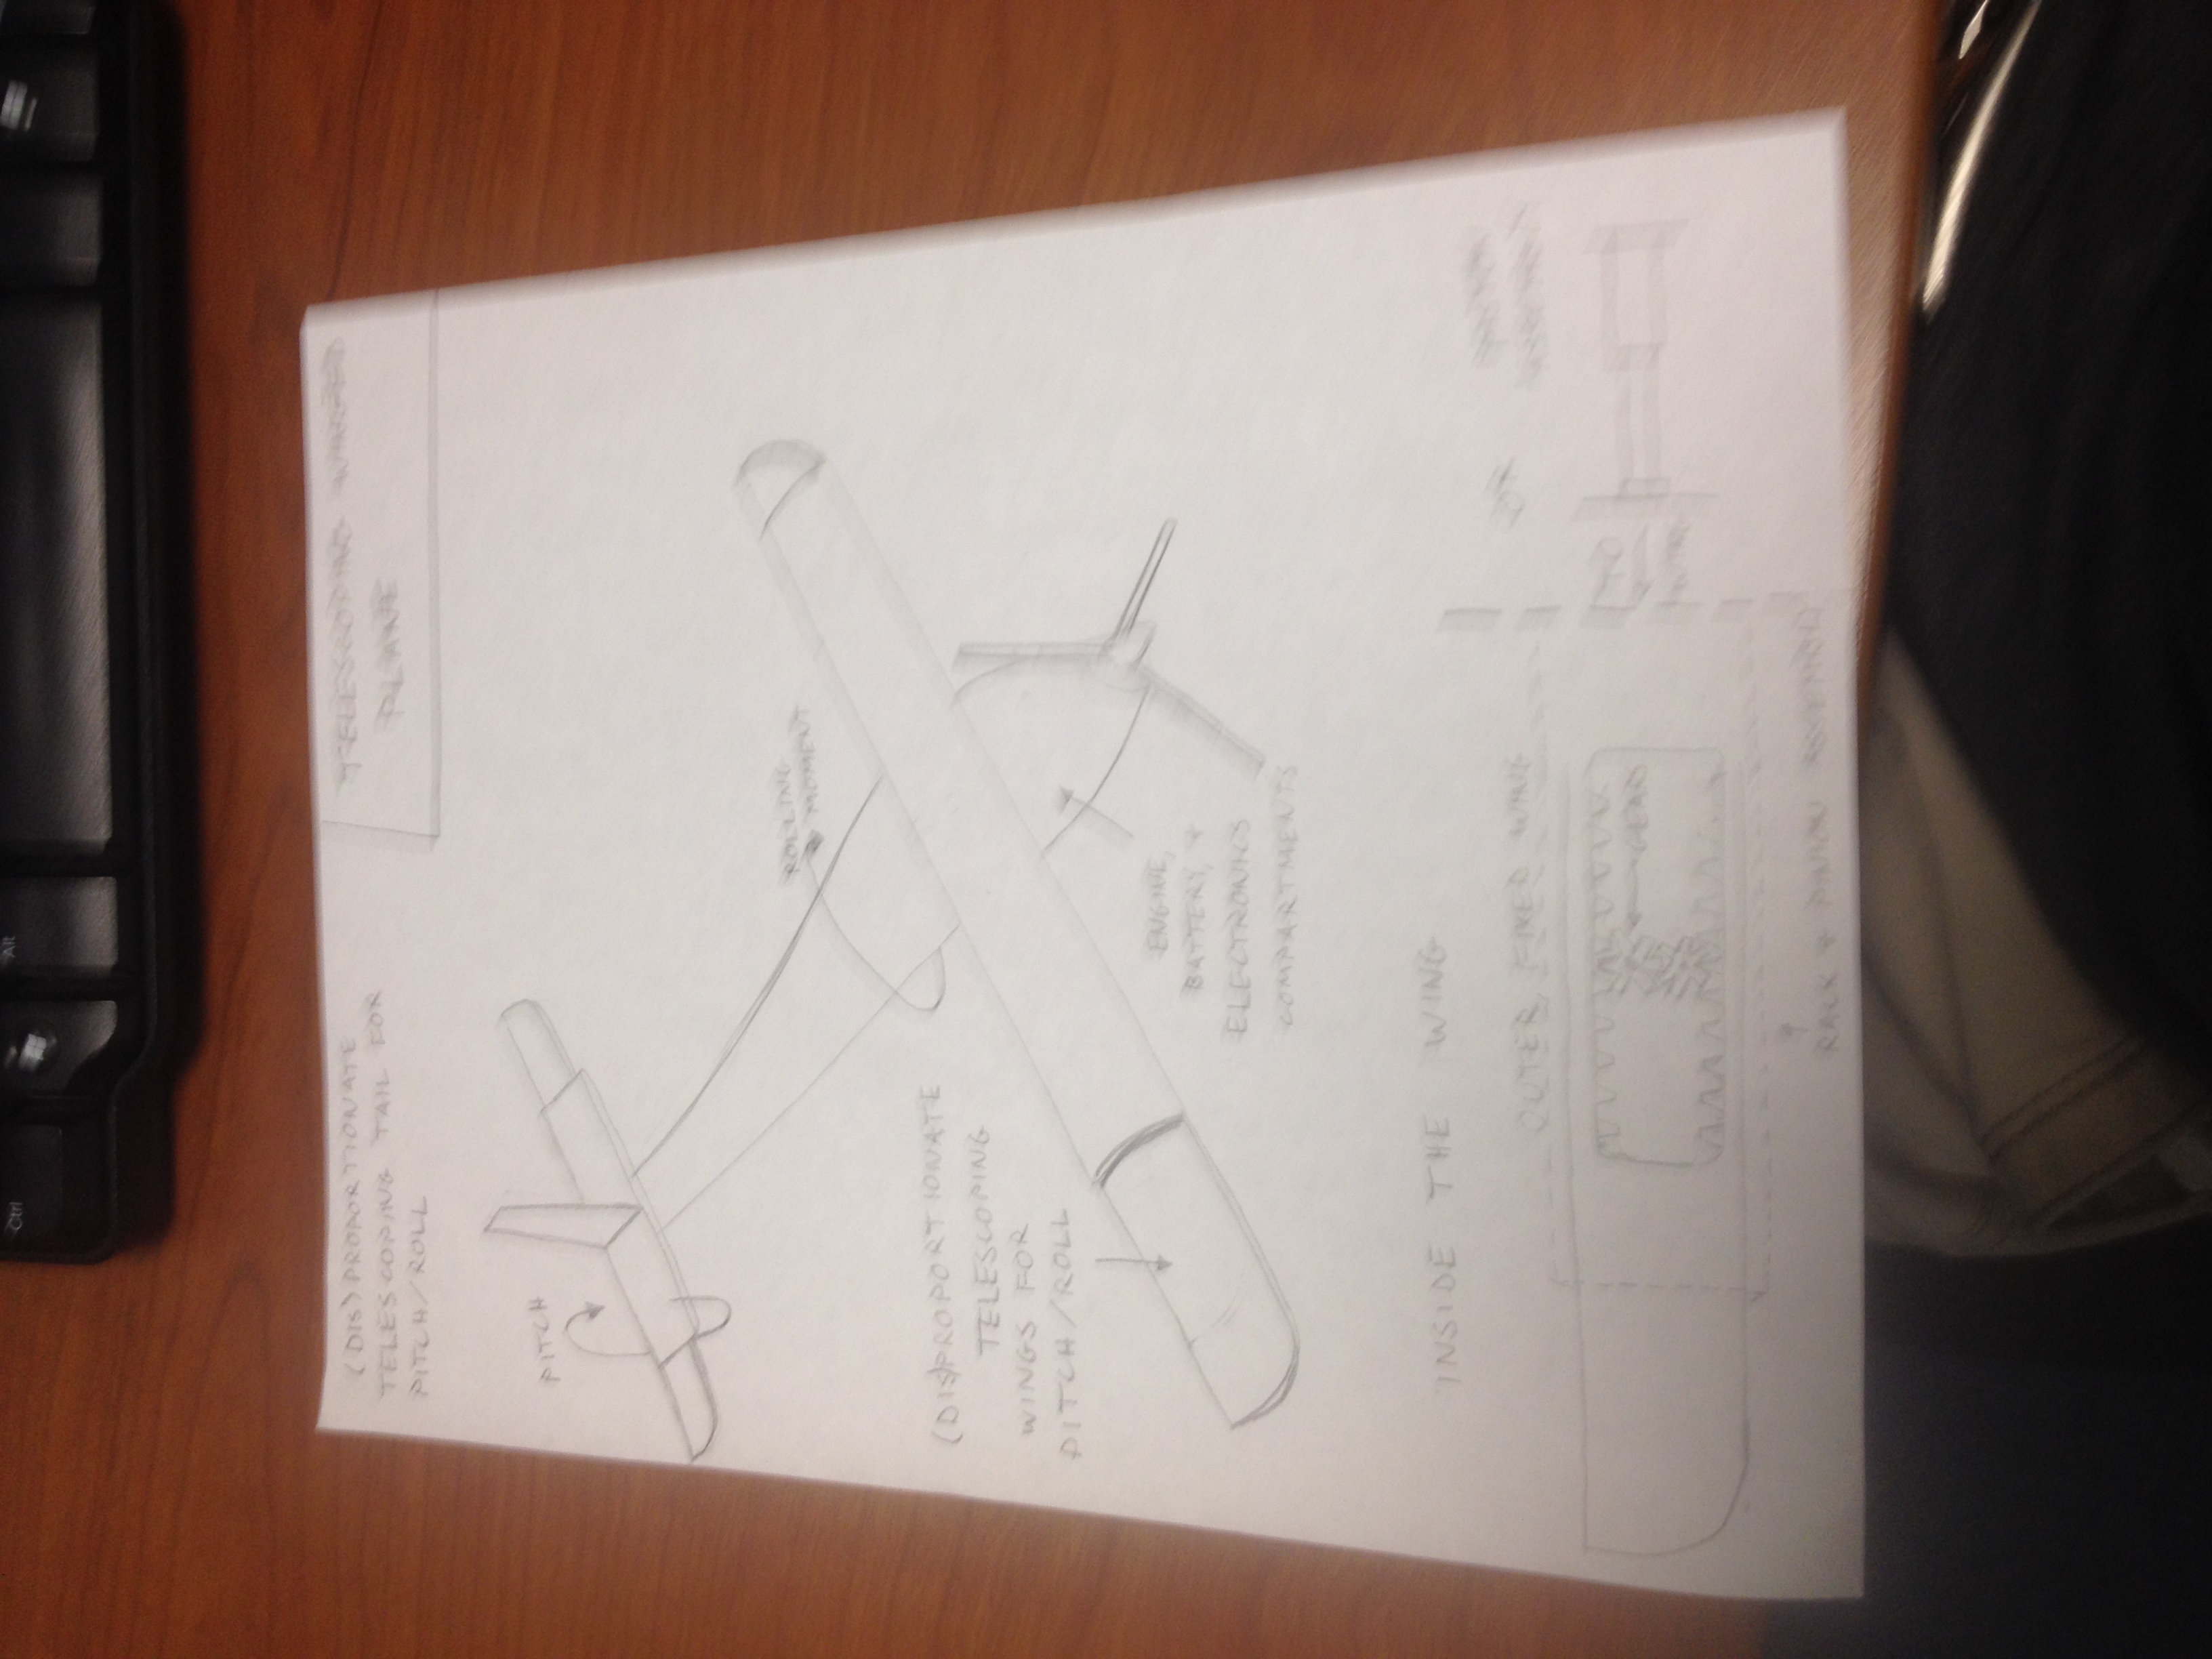 Ctrl
Alt
(DIS)PROPORTIONATE
TELESCOPING TAIL FOR
PITCH/ROLL
TELESCOPING WINGED
PLANE
PITCH
ROLLING
MOMENT
(DIS)PROPORTIONATE
TELESCOPING
WINGS FOR
PITCH/ROLL
ENGINE,
BATTERY, +
ELECTRONICS
COMPARTMENTS
INSIDE THE WING
OUTER FIXED WING
GEAR
RACK + PINION ASSEMBLY
OR
TO